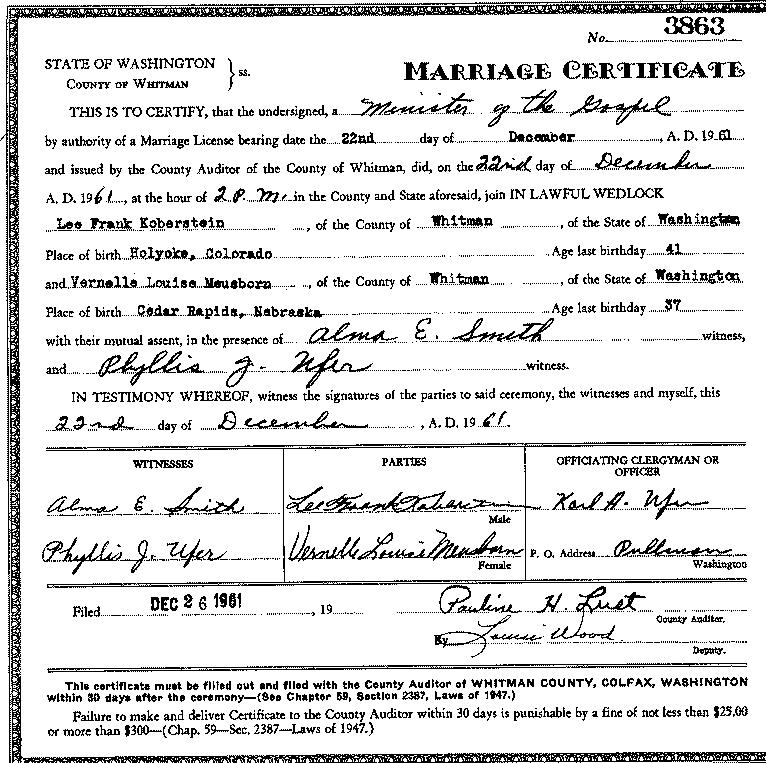 No. 3863
STATE OF WASHINGTON } ss.
COUNTY OF WHITMAN
MARRIAGE CERTIFICATE
THIS IS TO CERTIFY, that the undersigned, a Minister of the Gospel
by authority of a Marriage License bearing date the 22nd day of December, A. D. 1961
and issued by the County Auditor of the County of Whitman, did, on the 22nd day of December
A. D. 1961, at the hour of 2 P. M. in the County and State aforesaid, join IN LAWFUL WEDLOCK
Lee Frank Koberstein, of the County of Whitman, of the State of Washington
Place of birth Holyoke, Colorado Age last birthday 41
and Vernelle Louise Meusborn, of the County of Whitman, of the State of Washington
Place of birth Cedar Rapids, Nebraska Age last birthday 37
with their mutual assent, in the presence of Alma E. Smith witness,
and Phyllis J. Ufer witness.
IN TESTIMONY WHEREOF, witness the signatures of the parties to said ceremony, the witnesses and myself, this
22nd day of December, A. D. 1961.
WITNESSES PARTIES OFFICIATING CLERGYMAN OR
OFFICER
Alma E. Smith Lee Frank Koberstein Karl A. Ufer
Male
Phyllis J. Ufer Vernelle Louise Meusborn P. O. Address Pullman
Female Washington
Filed DEC 26 1961, 19 Pauline H. Lust
County Auditor.
By Laurie Wood
Deputy.
This certificate must be filled out and filed with the County Auditor of WHITMAN COUNTY, COLFAX, WASHINGTON
within 30 days after the ceremony—(See Chapter 59, Section 2387, Laws of 1947.)
Failure to make and deliver Certificate to the County Auditor within 30 days is punishable by a fine of not less than $25.00
or more than $300—(Chap. 59—Sec. 2387—Laws of 1947.)